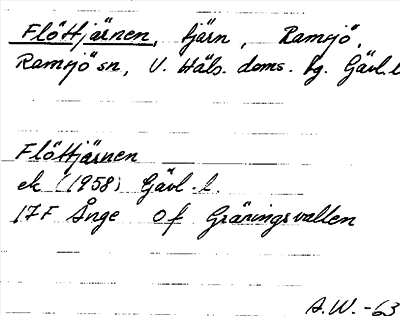 Flöttjärnen, tjärn, Ramsjö,
Ramsjö sn, V. Häls. doms. hg. Gävl. l
Flöttjärnen
ek (1958) Gävl. l.
17F Ånge Of Gräningsvallen
A.W. -63